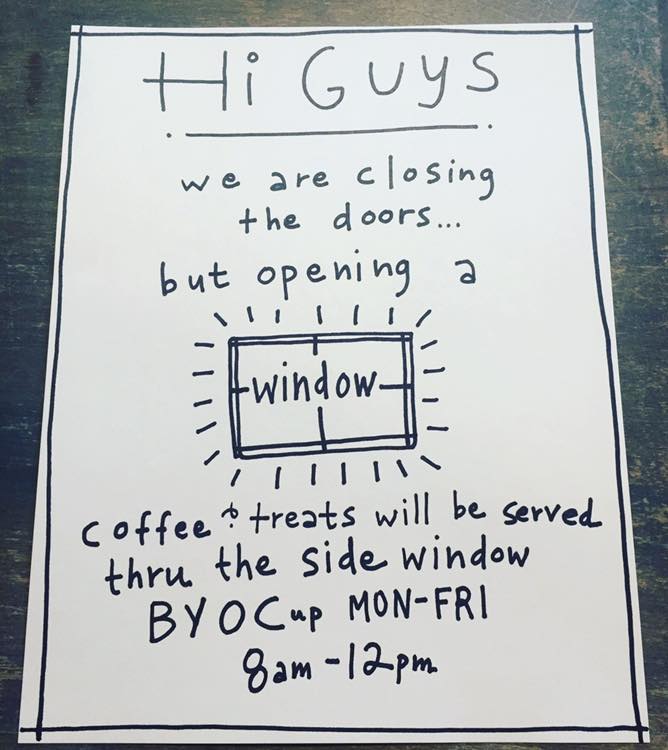 Hi GUYS
we are closing
the doors...
but opening a
window
coffee & treats will be served
thru the side window
BYOCup MON-FRI
8am-12pm